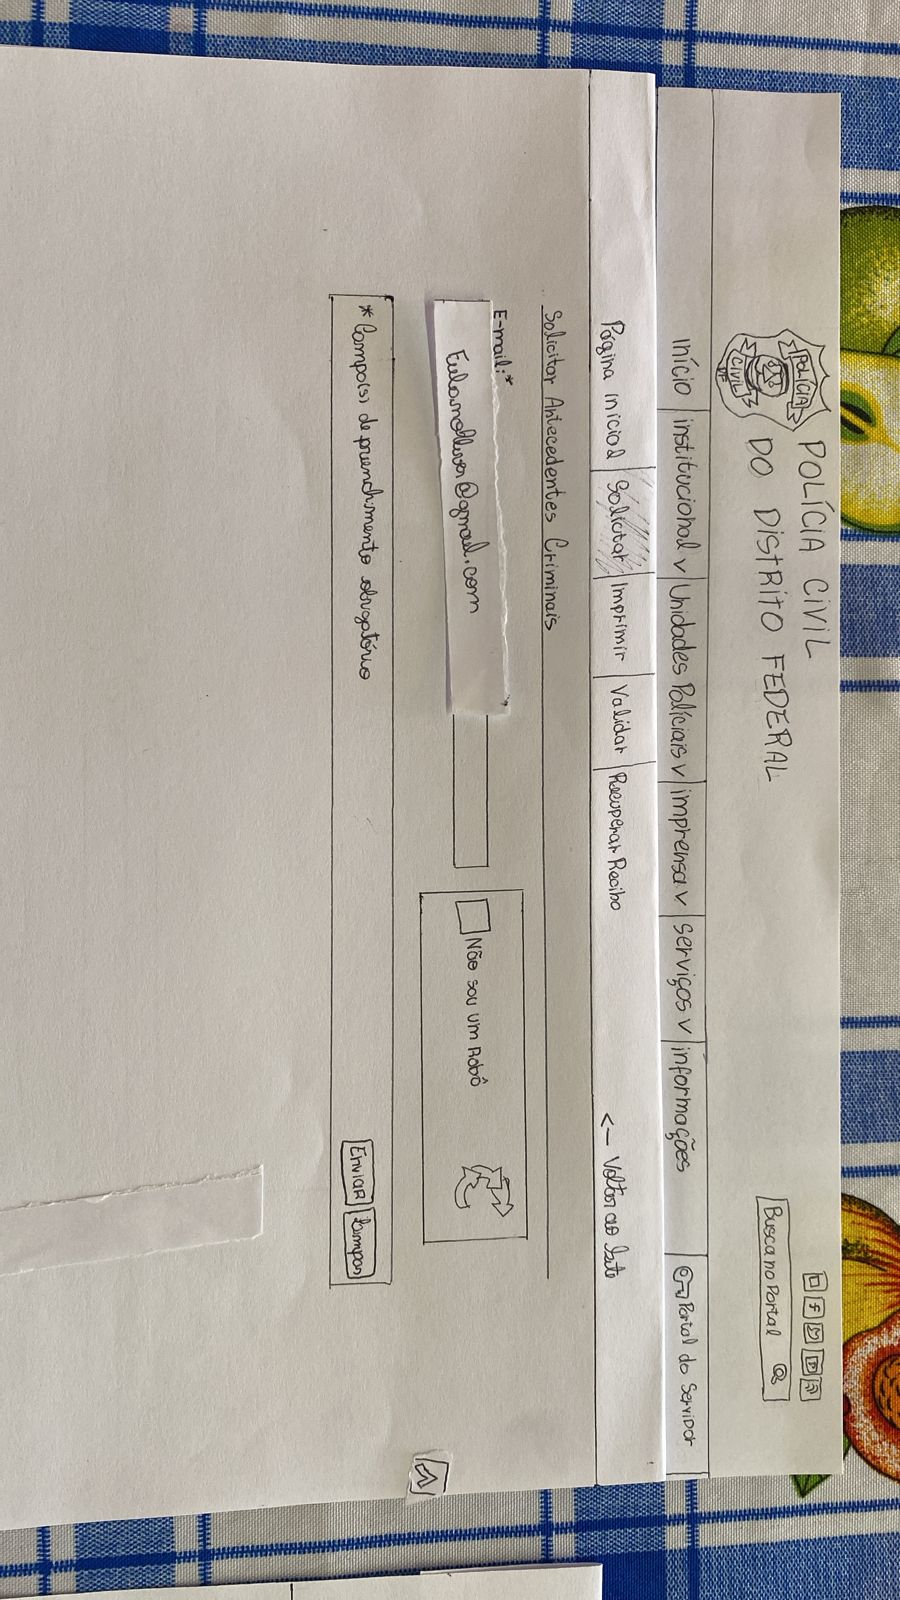 POLÍCIA
CIVIL
DF
POLÍCIA CIVIL
DO DISTRITO FEDERAL
Busca no Portal
início
institucional v
Unidades Policiais v
imprensa v
serviços v
informações
Portal do Servidor
Página inicial
Solicitar
Imprimir
Validar
Recuperar Recibo
<- Voltar ao
Solicitar Antecedentes Criminais
E-mail:*
@gmail.com
Não sou um Robô
* Campo(s) de preenchimento obrigatório
Enviar
Limpar